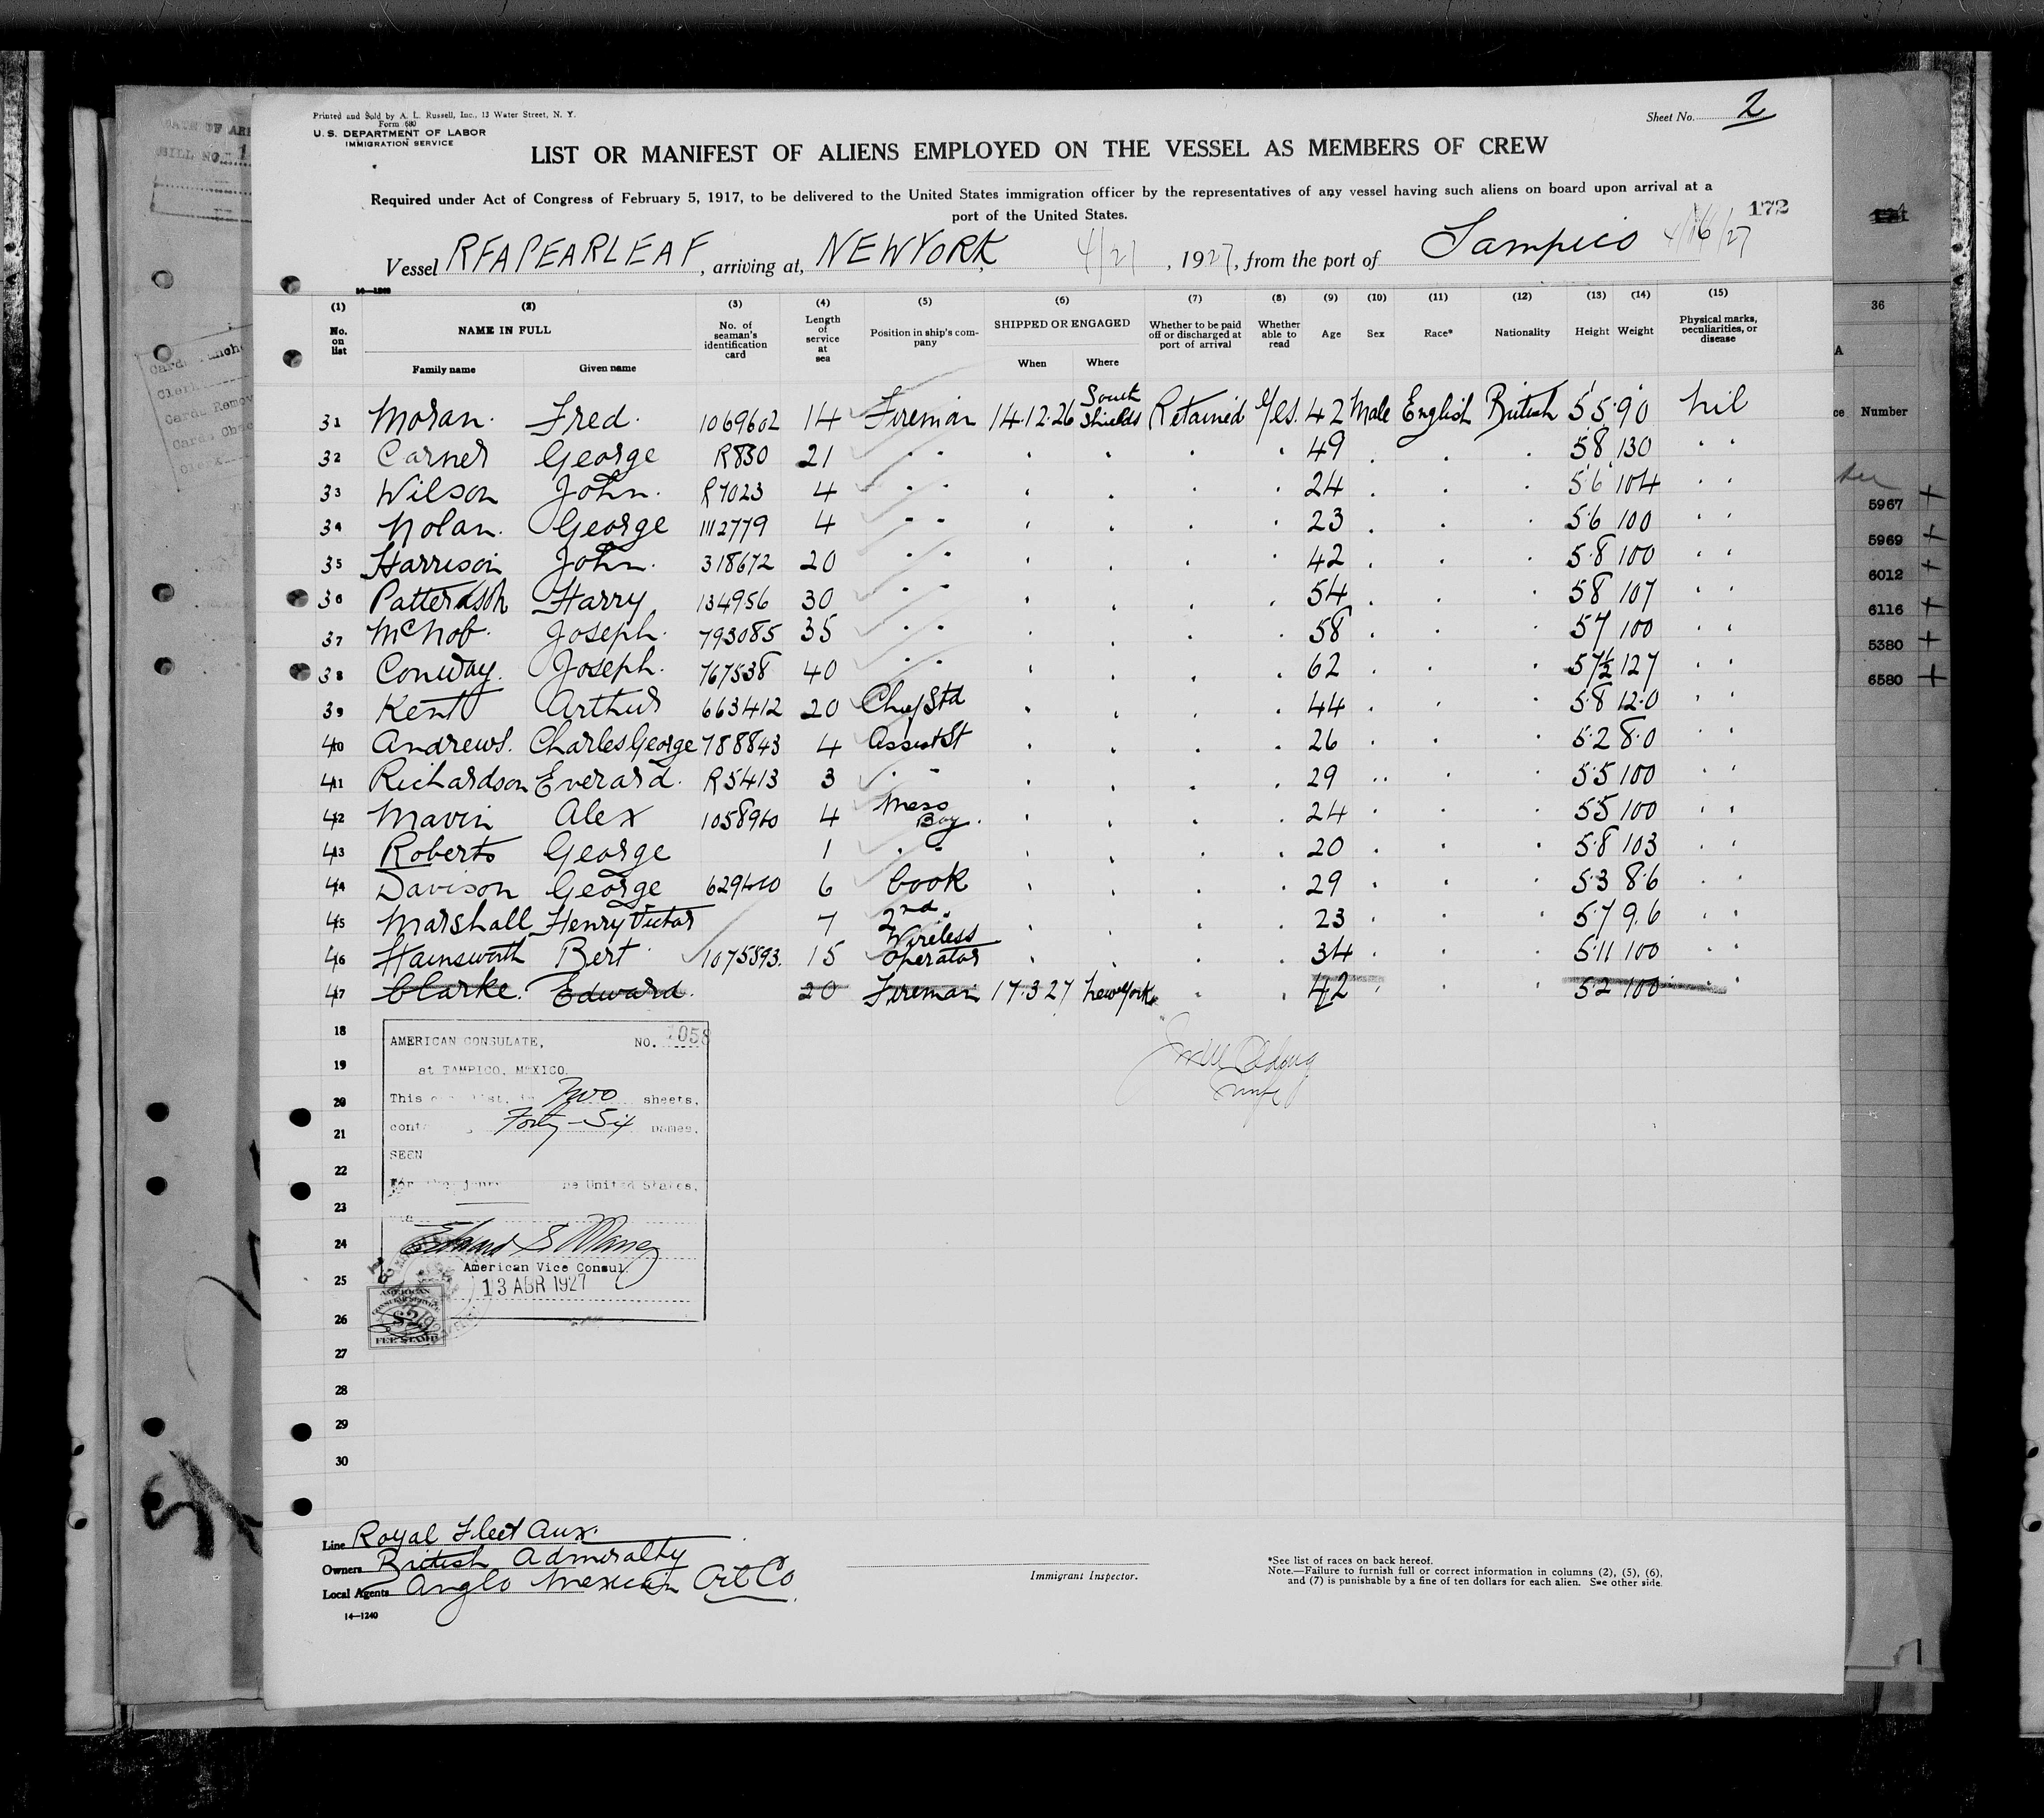 Printed and Sold by A. L. Russell, Inc., 13 Water Street, N. Y.
Form 680
U. S. DEPARTMENT OF LABOR
IMMIGRATION SERVICE
Sheet No. 2
LIST OR MANIFEST OF ALIENS EMPLOYED ON THE VESSEL AS MEMBERS OF CREW
Required under Act of Congress of February 5, 1917, to be delivered to the United States immigration officer by the representatives of any vessel having such aliens on board upon arrival at a
port of the United States.
172
Vessel RFA PEARLEAF, arriving at, NEW YORK, 4/21, 1927, from the port of Tampico 4/16/27
14—1240
(1) (2) (3) (4) (5) (6) (7) (8) (9) (10) (11) (12) (13) (14) (15)
No. on list NAME IN FULL Family name Given name No. of seaman's identification card Length of service at sea Position in ship's company SHIPPED OR ENGAGED When Where Whether to be paid off or discharged at port of arrival Whether able to read Age Sex Race* Nationality Height Weight Physical marks, peculiarities, or disease
31 Moran. Fred. 1069602 14 Fireman 14.12.26 South Shields Retained Yes. 42 Male English British 5'5 90 Nil
32 Carner George R830 21 " " 49 5 8 130 " "
33 Wilson John. R7023 4 " " 24 5 6 104 " "
34 Nolan. George 1112779 4 " " 23 5 6 100 " "
35 Harrison John. 318672 20 " " 42 5.8 100 " "
36 Patterson Harry 134956 30 " " 54 5 8 107 " "
37 McNob. Joseph. 793085 35 " " 58 5 7 100 " "
38 Conway. Joseph. 767538 40 " " 62 5 7½ 127 " "
39 Kent Arthur 663412 20 Chief Std 44 5.8 12.0 " "
40 Andrews. Charles George 788843 4 Assist St 26 5.2 8.0 " "
41 Richardson Everard. R5413 3 " " 29 5.5 100 " "
42 Mavin Alex 1058960 4 Mess Boy. 24 5 5 100 " "
43 Roberts George 1 " " 20 5.8 103 " "
44 Davison George 6 Cook 29 5.3 8.6 " "
45 Marshall Henry Victor 7 2nd " 23 5.7 9.6 " "
46 Hainsworth Bert 1075893. 15 Wireless Operator 34 5.11 100 " "
47 Clarke. Edward. 20 Fireman 17.3.27 New York. 42 5.2 100 " "
18
19
20
21
22
23
24
25
26
27
28
29
30
AMERICAN CONSULATE, NO. 1058
at TAMPICO, MEXICO.
This list, in Two sheets,
Forty-Six names,
SEEN
United States,
American Vice Consul.
13 ABR 1927
AMERICAN
CONSULAR SERVICE
$2
FEE STAMP
Line Royal Fleet Aux.
Owners British Admiralty
Local Agents Anglo Mexican Oil Co.
14—1240
Immigrant Inspector.
*See list of races on back hereof.
Note.—Failure to furnish full or correct information in columns (2), (5), (6),
and (7) is punishable by a fine of ten dollars for each alien. See other side.
36
Number
5967 +
5969 +
6012 +
6116 +
5380 +
6580 +